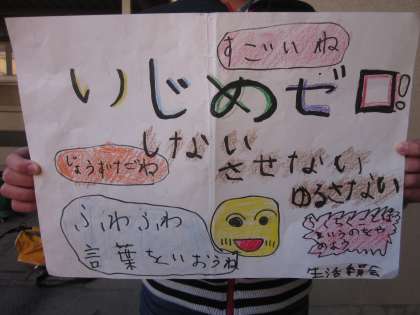 すごいね
いじめゼロ!!
しない
じょうずだね
させない
ゆるさない
ふわふわ
言葉をいおうね
というのをや
めよう
生活委員会